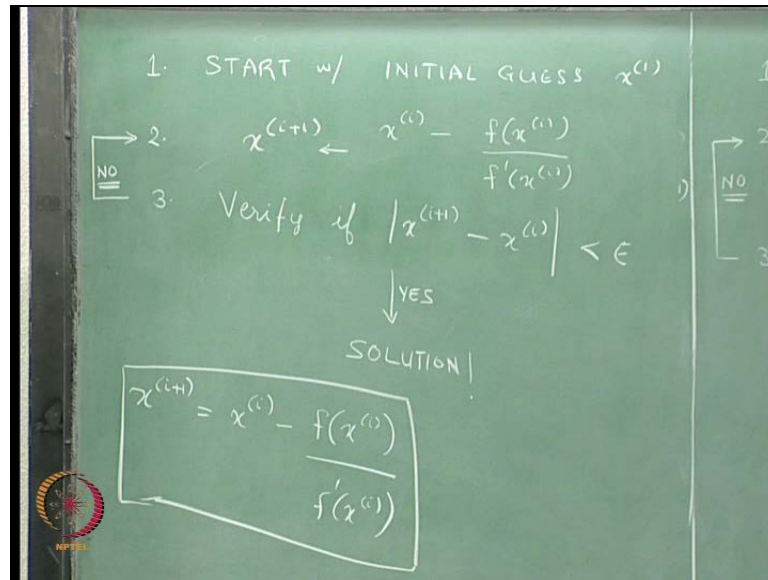 1. START w/ INITIAL GUESS x^(1)
2. x^(i+1) ← x^(i) - f(x^(i)) / f'(x^(i))
NO
3. Verify if |x^(i+1) - x^(i)| < ε
YES
SOLUTION!
x^(i+1) = x^(i) - f(x^(i)) / f'(x^(i))
NPTEL
1
2
NO
3